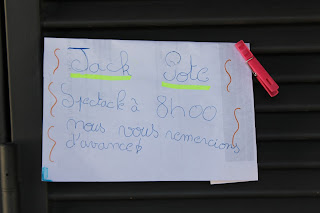 Jack Pote
Spectack à 8h00
nous vous remercions
d'avance!